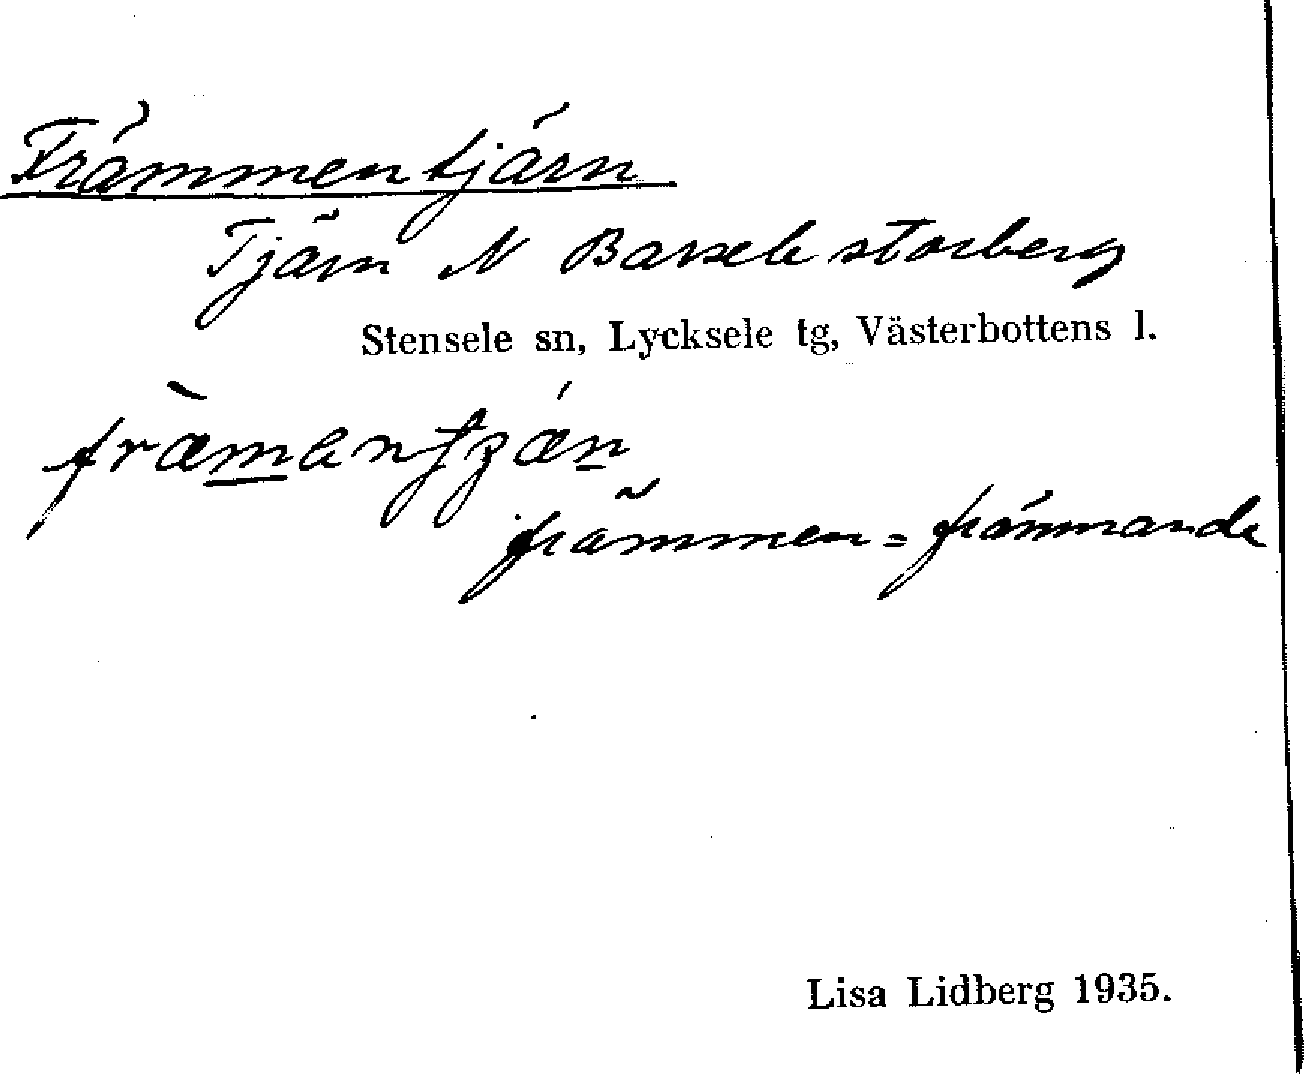 Främmentjärn
Tjärn N Barsele storberg
Stensele sn, Lycksele tg, Västerbottens l.
främmen = främmande
Lisa Lidberg 1935.